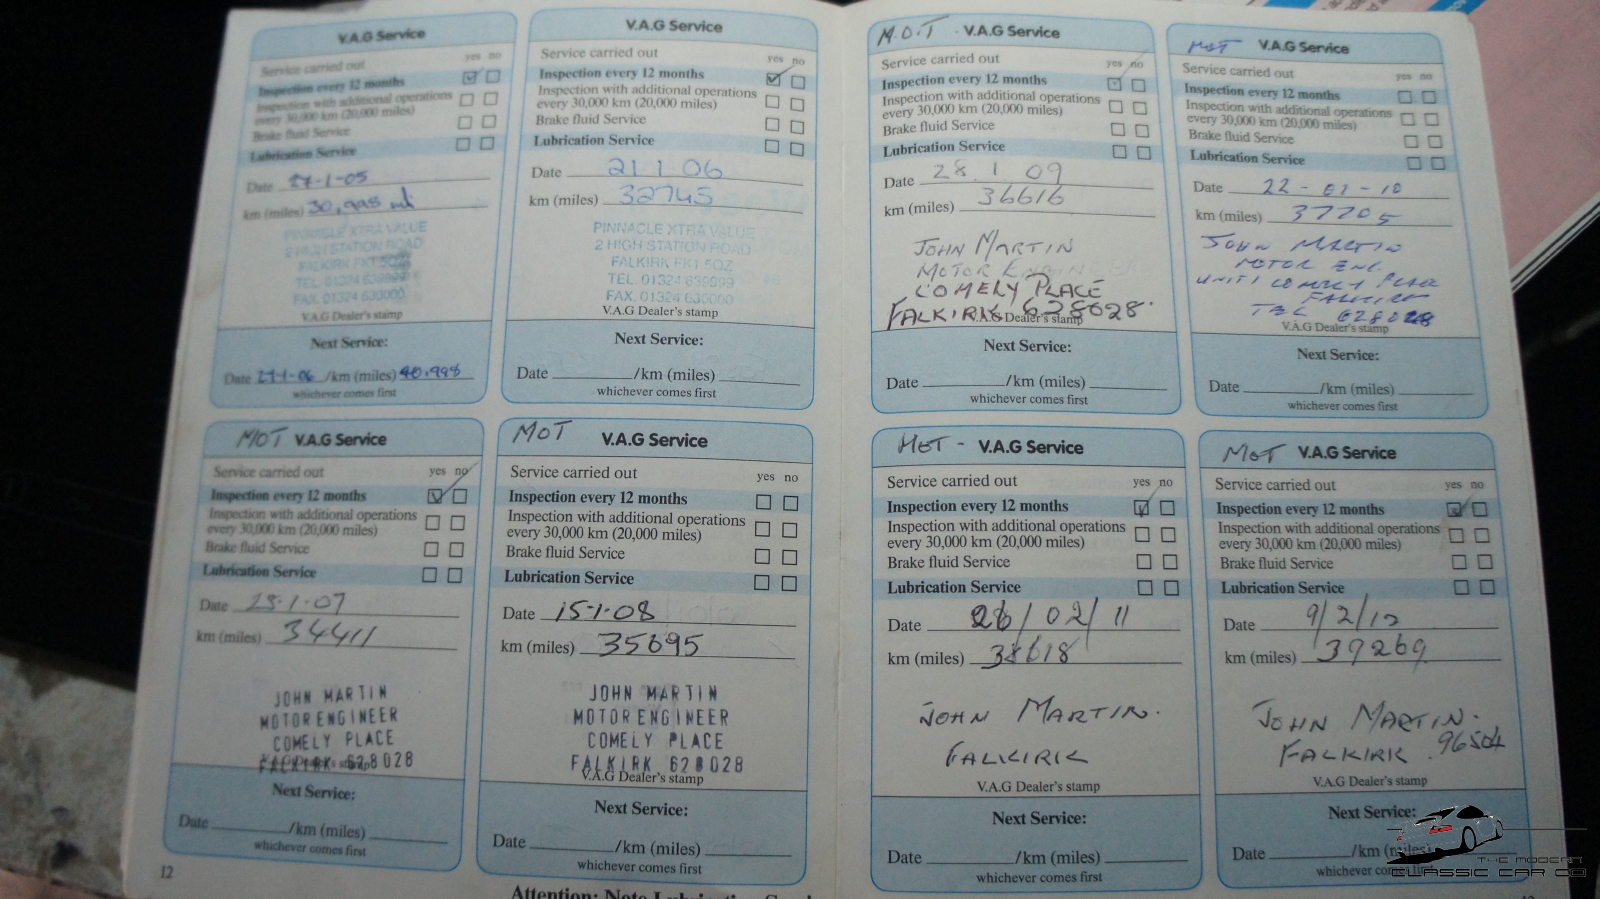 V.A.G Service
Service carried out
yes no
Inspection every 12 months
Inspection with additional operations
every 30,000 km (20,000 miles)
Brake fluid Service
Lubrication Service
Date 27-1-05
km (miles) 30,998 mls
PINNACLE XTRA VALUE
2 HIGH STATION ROAD
FALKIRK FK1 5QZ
TEL. 01324 639999
FAX. 01324 630000
V.A.G Dealer's stamp
Next Service:
Date 27-1-06 /km (miles) 40,998
whichever comes first
V.A.G Service
Service carried out
yes no
Inspection every 12 months
Inspection with additional operations
every 30,000 km (20,000 miles)
Brake fluid Service
Lubrication Service
Date 21 1 06
km (miles) 32745
PINNACLE XTRA VALUE
2 HIGH STATION ROAD
FALKIRK FK1 5QZ
TEL. 01324 639999
FAX. 01324 630000
V.A.G Dealer's stamp
Next Service:
Date /km (miles)
whichever comes first
M.O.T V.A.G Service
Service carried out
yes no
Inspection every 12 months
Inspection with additional operations
every 30,000 km (20,000 miles)
Brake fluid Service
Lubrication Service
Date 28 1 09
km (miles) 36616
JOHN MARTIN
MOTOR ENGINEER
COMELY PLACE
FALKIRK 628028.
V.A.G Dealer's stamp
Next Service:
Date /km (miles)
whichever comes first
MOT V.A.G Service
Service carried out
yes no
Inspection every 12 months
Inspection with additional operations
every 30,000 km (20,000 miles)
Brake fluid Service
Lubrication Service
Date 22-01-10
km (miles) 37705
JOHN MARTIN
MOTOR ENG.
UNIT 1 COMELY PLACE
FALKIRK
TEL 628028
V.A.G Dealer's stamp
Next Service:
Date /km (miles)
whichever comes first
MOT V.A.G Service
Service carried out
yes no
Inspection every 12 months
Inspection with additional operations
every 30,000 km (20,000 miles)
Brake fluid Service
Lubrication Service
Date 25.1.07
km (miles) 34411
JOHN MARTIN
MOTOR ENGINEER
COMELY PLACE
FALKIRK 628028
Next Service:
Date /km (miles)
whichever comes first
12
MOT V.A.G Service
Service carried out
yes no
Inspection every 12 months
Inspection with additional operations
every 30,000 km (20,000 miles)
Brake fluid Service
Lubrication Service
Date 15-1-08
km (miles) 35695
JOHN MARTIN
MOTOR ENGINEER
COMELY PLACE
FALKIRK 628028
V.A.G Dealer's stamp
Next Service:
Date /km (miles)
whichever comes first
MOT - V.A.G Service
Service carried out
yes no
Inspection every 12 months
Inspection with additional operations
every 30,000 km (20,000 miles)
Brake fluid Service
Lubrication Service
Date 26/02/11
km (miles) 38618
JOHN MARTIN.
FALKIRK
V.A.G Dealer's stamp
Next Service:
Date /km (miles)
whichever comes first
MOT V.A.G Service
Service carried out
yes no
Inspection every 12 months
Inspection with additional operations
every 30,000 km (20,000 miles)
Brake fluid Service
Lubrication Service
Date 9/2/12
km (miles) 39269
JOHN MARTIN.
FALKIRK. 96504
V.A.G Dealer's stamp
Next Service:
Date /km (miles)
whichever comes first
THE MODERN
CLASSIC CAR CO
Attention: Note Lubrication